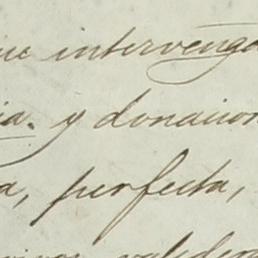 que intervenga
ia. y donacion
a, perfecta,